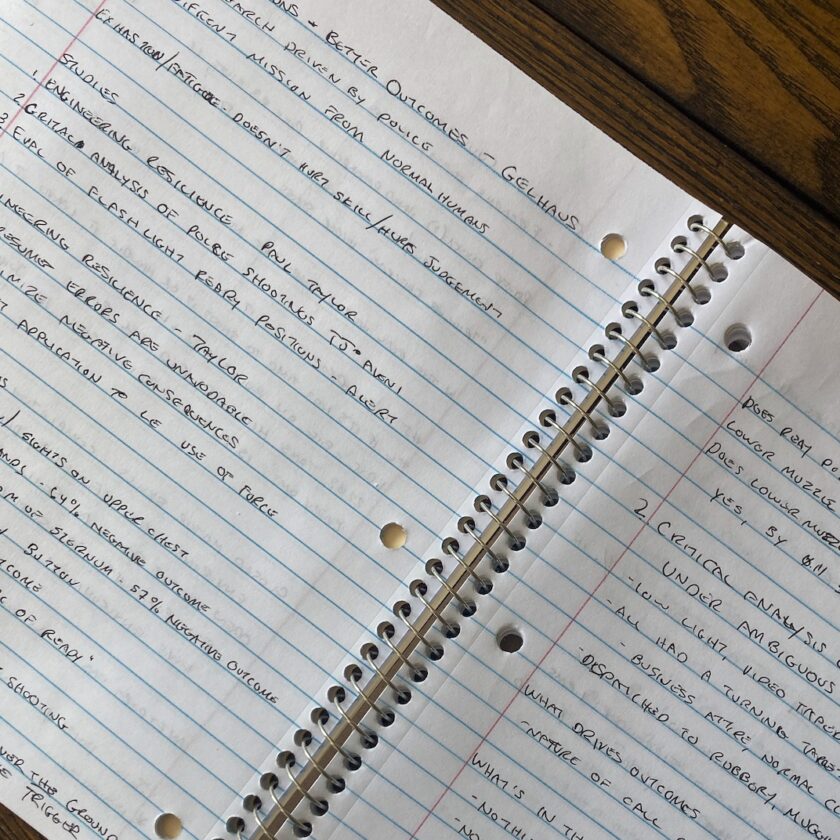 + BETTER OUTCOMES - GELHAUS
DRIVEN BY POLICE
DIFFERENT MISSION FROM NORMAL HUMANS
EXHASTION/FATIGUE DOESN'T HURT SKILL/HURTS JUDGEMENT
STUDIES
1. ENGINEERING RESILIENCE PAUL TAYLOR
2. CRITICAL ANALYSIS OF POLICE SHOOTINGS
3 EVAL OF FLASHLIGHT READY POSITIONS - ALERT
RESILIENCE - TAYLOR
ERRORS ARE UNAVOIDABLE
NEGATIVE CONSEQUENCES
APPLICATION TO LE USE OF FORCE
SIGHTS ON UPPER CHEST
64% NEGATIVE OUTCOME
OF STERNUM - 57% NEGATIVE OUTCOME
BUTTON
OF READY"
SHOOTING
THE GROUND
TRIGGER
DOES READY
LOWER MUZZLE
DOES LOWER
YES, BY
2. CRITICAL ANALYSIS
UNDER AMBIGUOUS
-LOW LIGHT, VIDEO
-ALL HAD A TURNING
- BUSINESS ATTIRE, NORMAL
-DISPATCHED TO ROBBERY,
WHAT DRIVES OUTCOMES
-NATURE OF CALL
WHAT'S IN